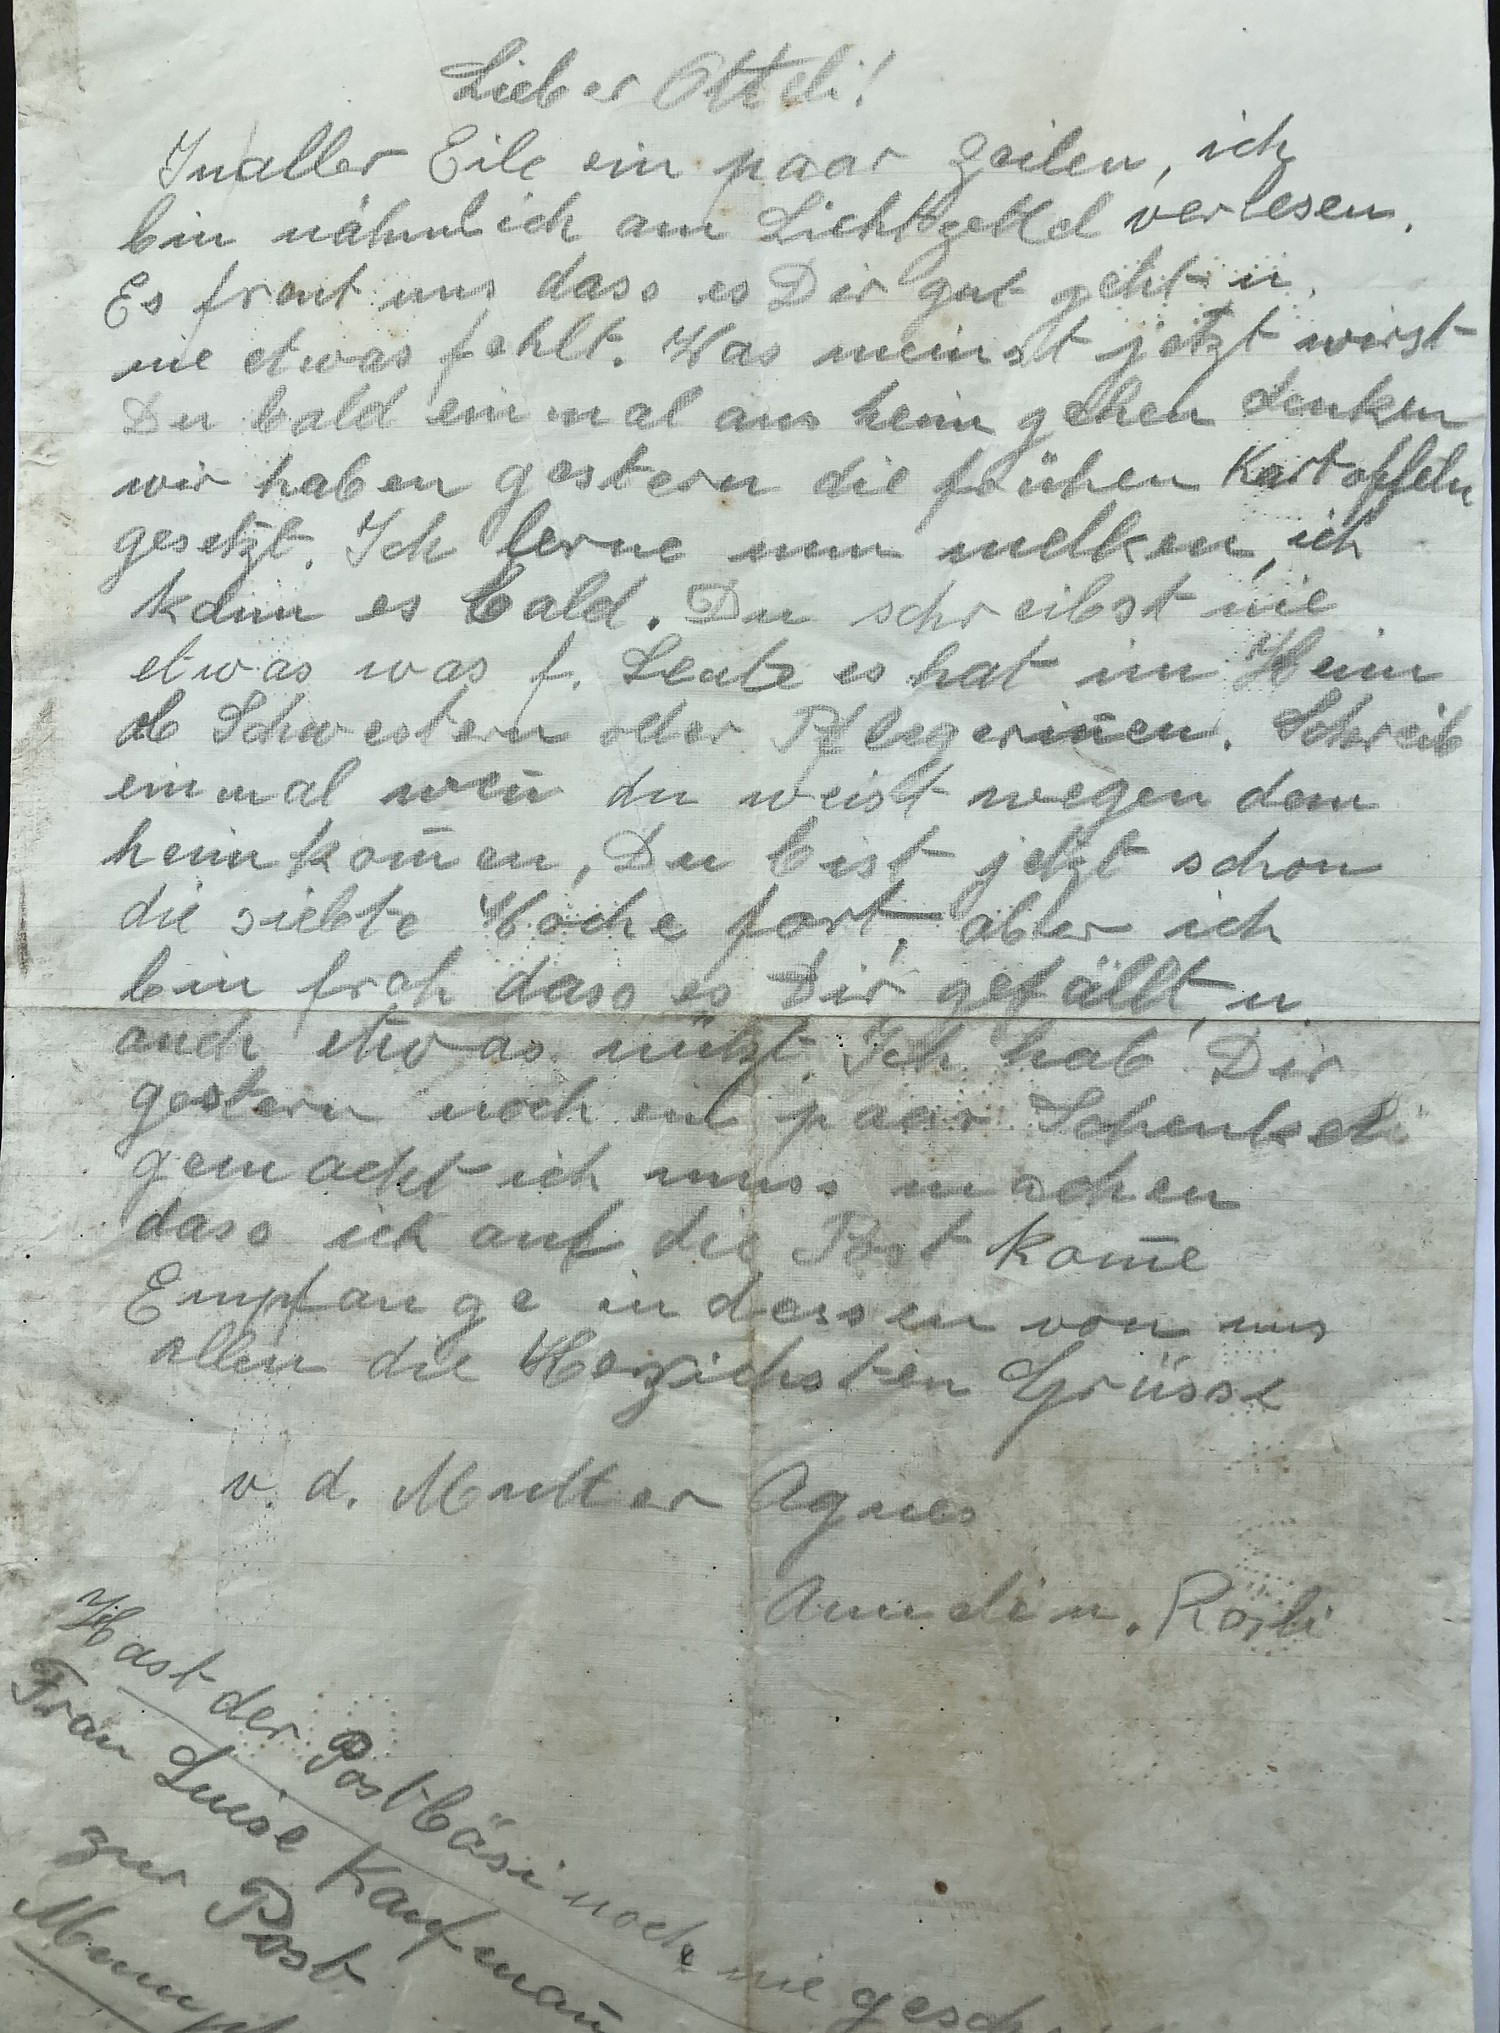 Lieber Otteli!
In aller Eile ein paar Zeilen, ich
bin nähmlich am Lichtzettel verlesen.
Es freut uns dass es Dir gut geht u.
nie etwas fehlt. Was meinst jetzt wirst
Du bald einmal ans heim gehen denken
wir haben gestern die frühen Kartoffeln
gesetzt. Ich lerne nun melken, ich
kann es bald. Du schreibst nie
etwas was f. Leute es hat im Heim
ob Schwestern oder Pflegerin̄en. Schreib
einmal wen̄ du weist wegen dem
heimkom̄en, Du bist jetzt schon
die siebte Woche fort, aber ich
bin froh dass es Dir gefällt, u.
auch etwas nützt. Ich hab Dir
gestern noch ein paar Schenkeli
gemacht ich muss machen
dass ich auf die Post kom̄e
Empfange indessen von uns
allen die Herzichsten Grüsse
v. d. Mutter Agnes
Anneli u. Rösli
Hast der Postbäsi noch nie gesch
Frau Luise Kaufman̄
zur Post
Mumpf